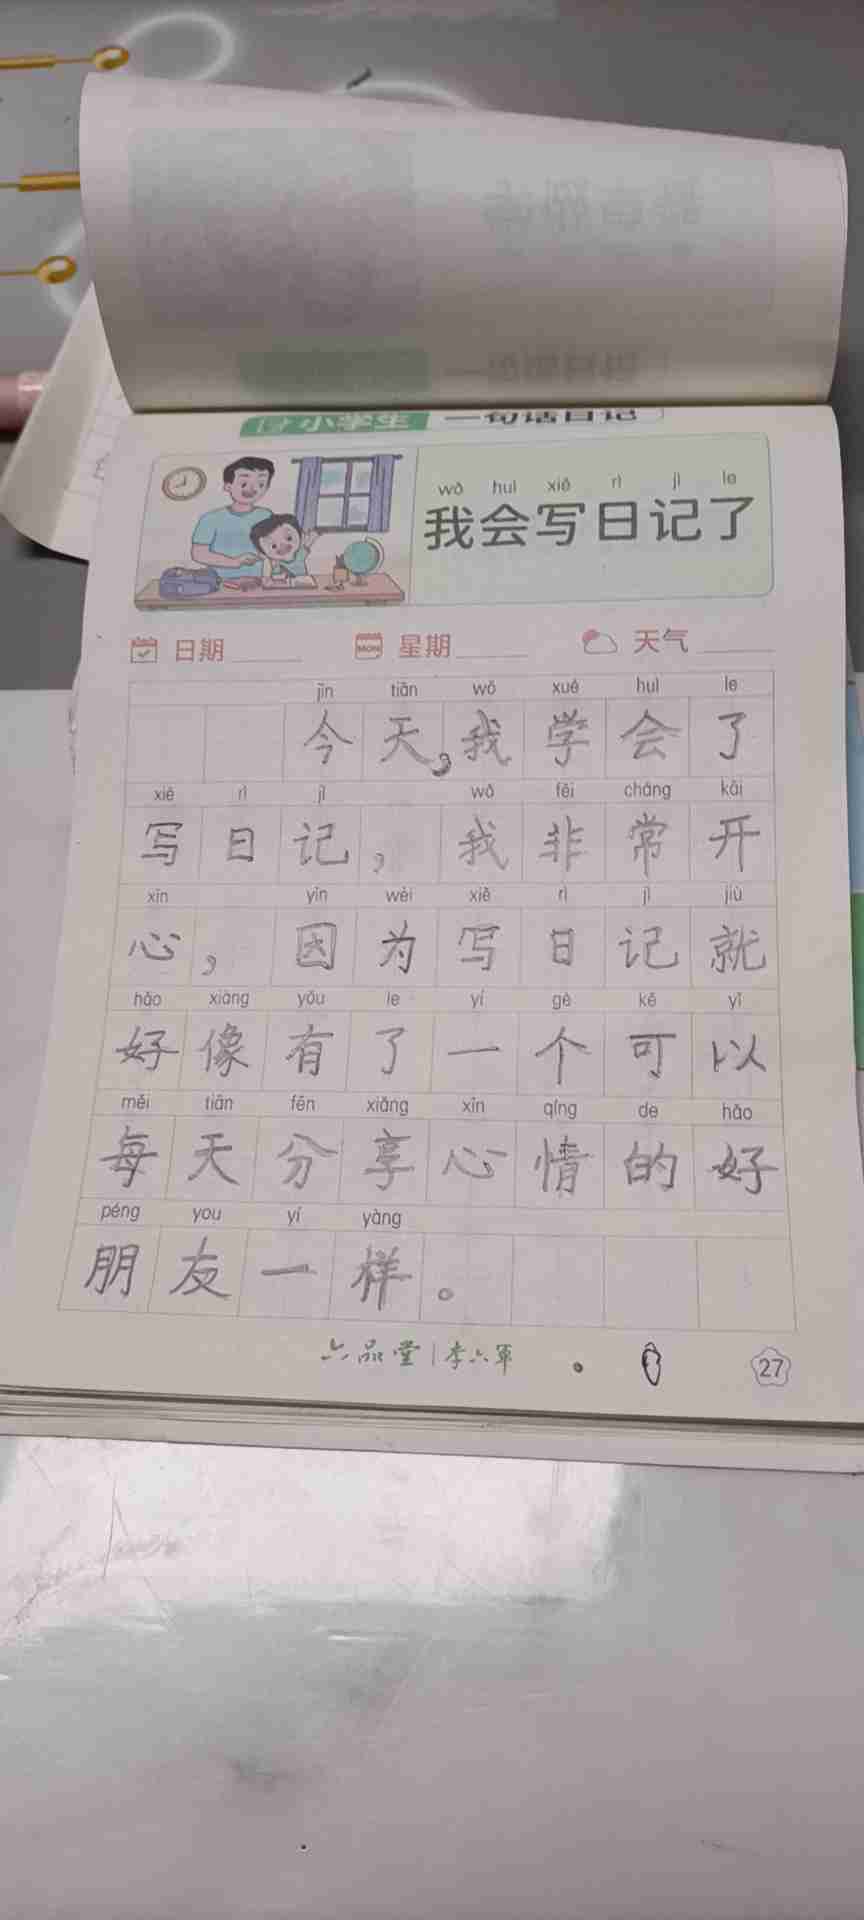 小学生 一句话日记
wǒ huì xiě rì jì le
我会写日记了
日期 MON 星期 天气
jīn tiān wǒ xué huì le
今天,我学会了
xiě rì jì wǒ fēi cháng kāi
写日记，我非常开
xīn yīn wèi xiě rì jì jiù
心，因为写日记就
hǎo xiàng yǒu le yí gè kě yǐ
好像有了一个可以
měi tiān fēn xiǎng xīn qíng de hǎo
每天分享心情的好
péng you yí yàng
朋友一样。
六品堂 | 李六军
27